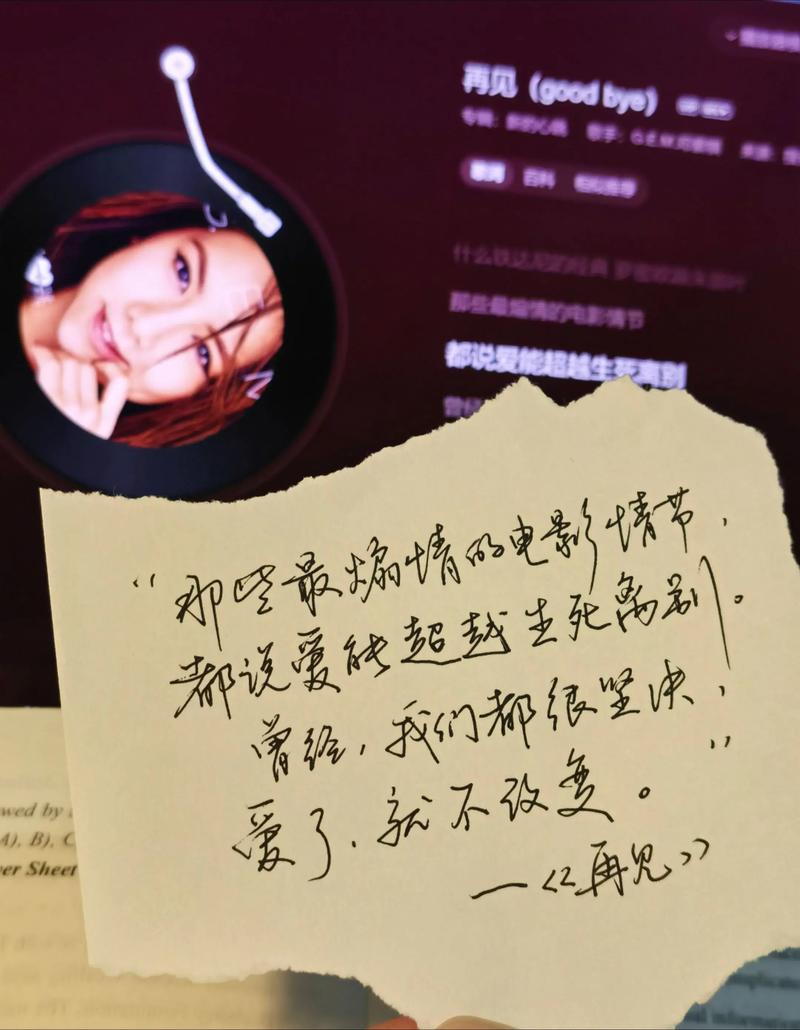 再见（good bye）
专辑：新的心跳 歌手：G.E.M.邓紫棋
歌词 百科 相似推荐
什么铁达尼的经典 罗密欧跟朱丽叶
那些最煽情的电影情节
都说爱能超越生死离别
曾经
“那些最煽情的电影情节，
都说爱能超越生死离别。
曾经，我们都很坚决，
爱了，就不改变。”
—《再见》
wed by
A), B), C
er Sheet